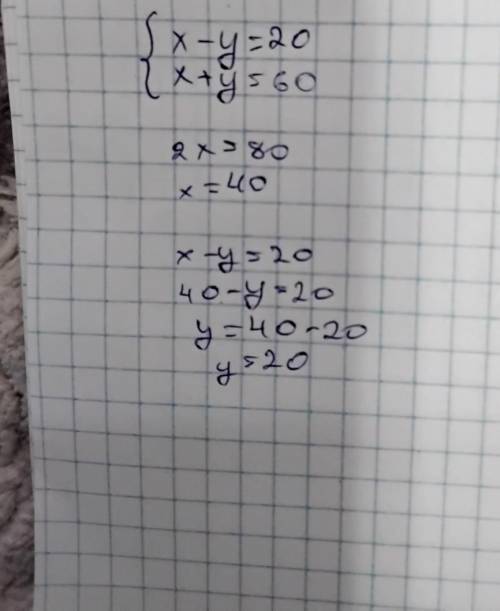 { x - y = 20
x + y = 60
2x = 80
x = 40
x - y = 20
40 - y = 20
y = 40 - 20
y = 20